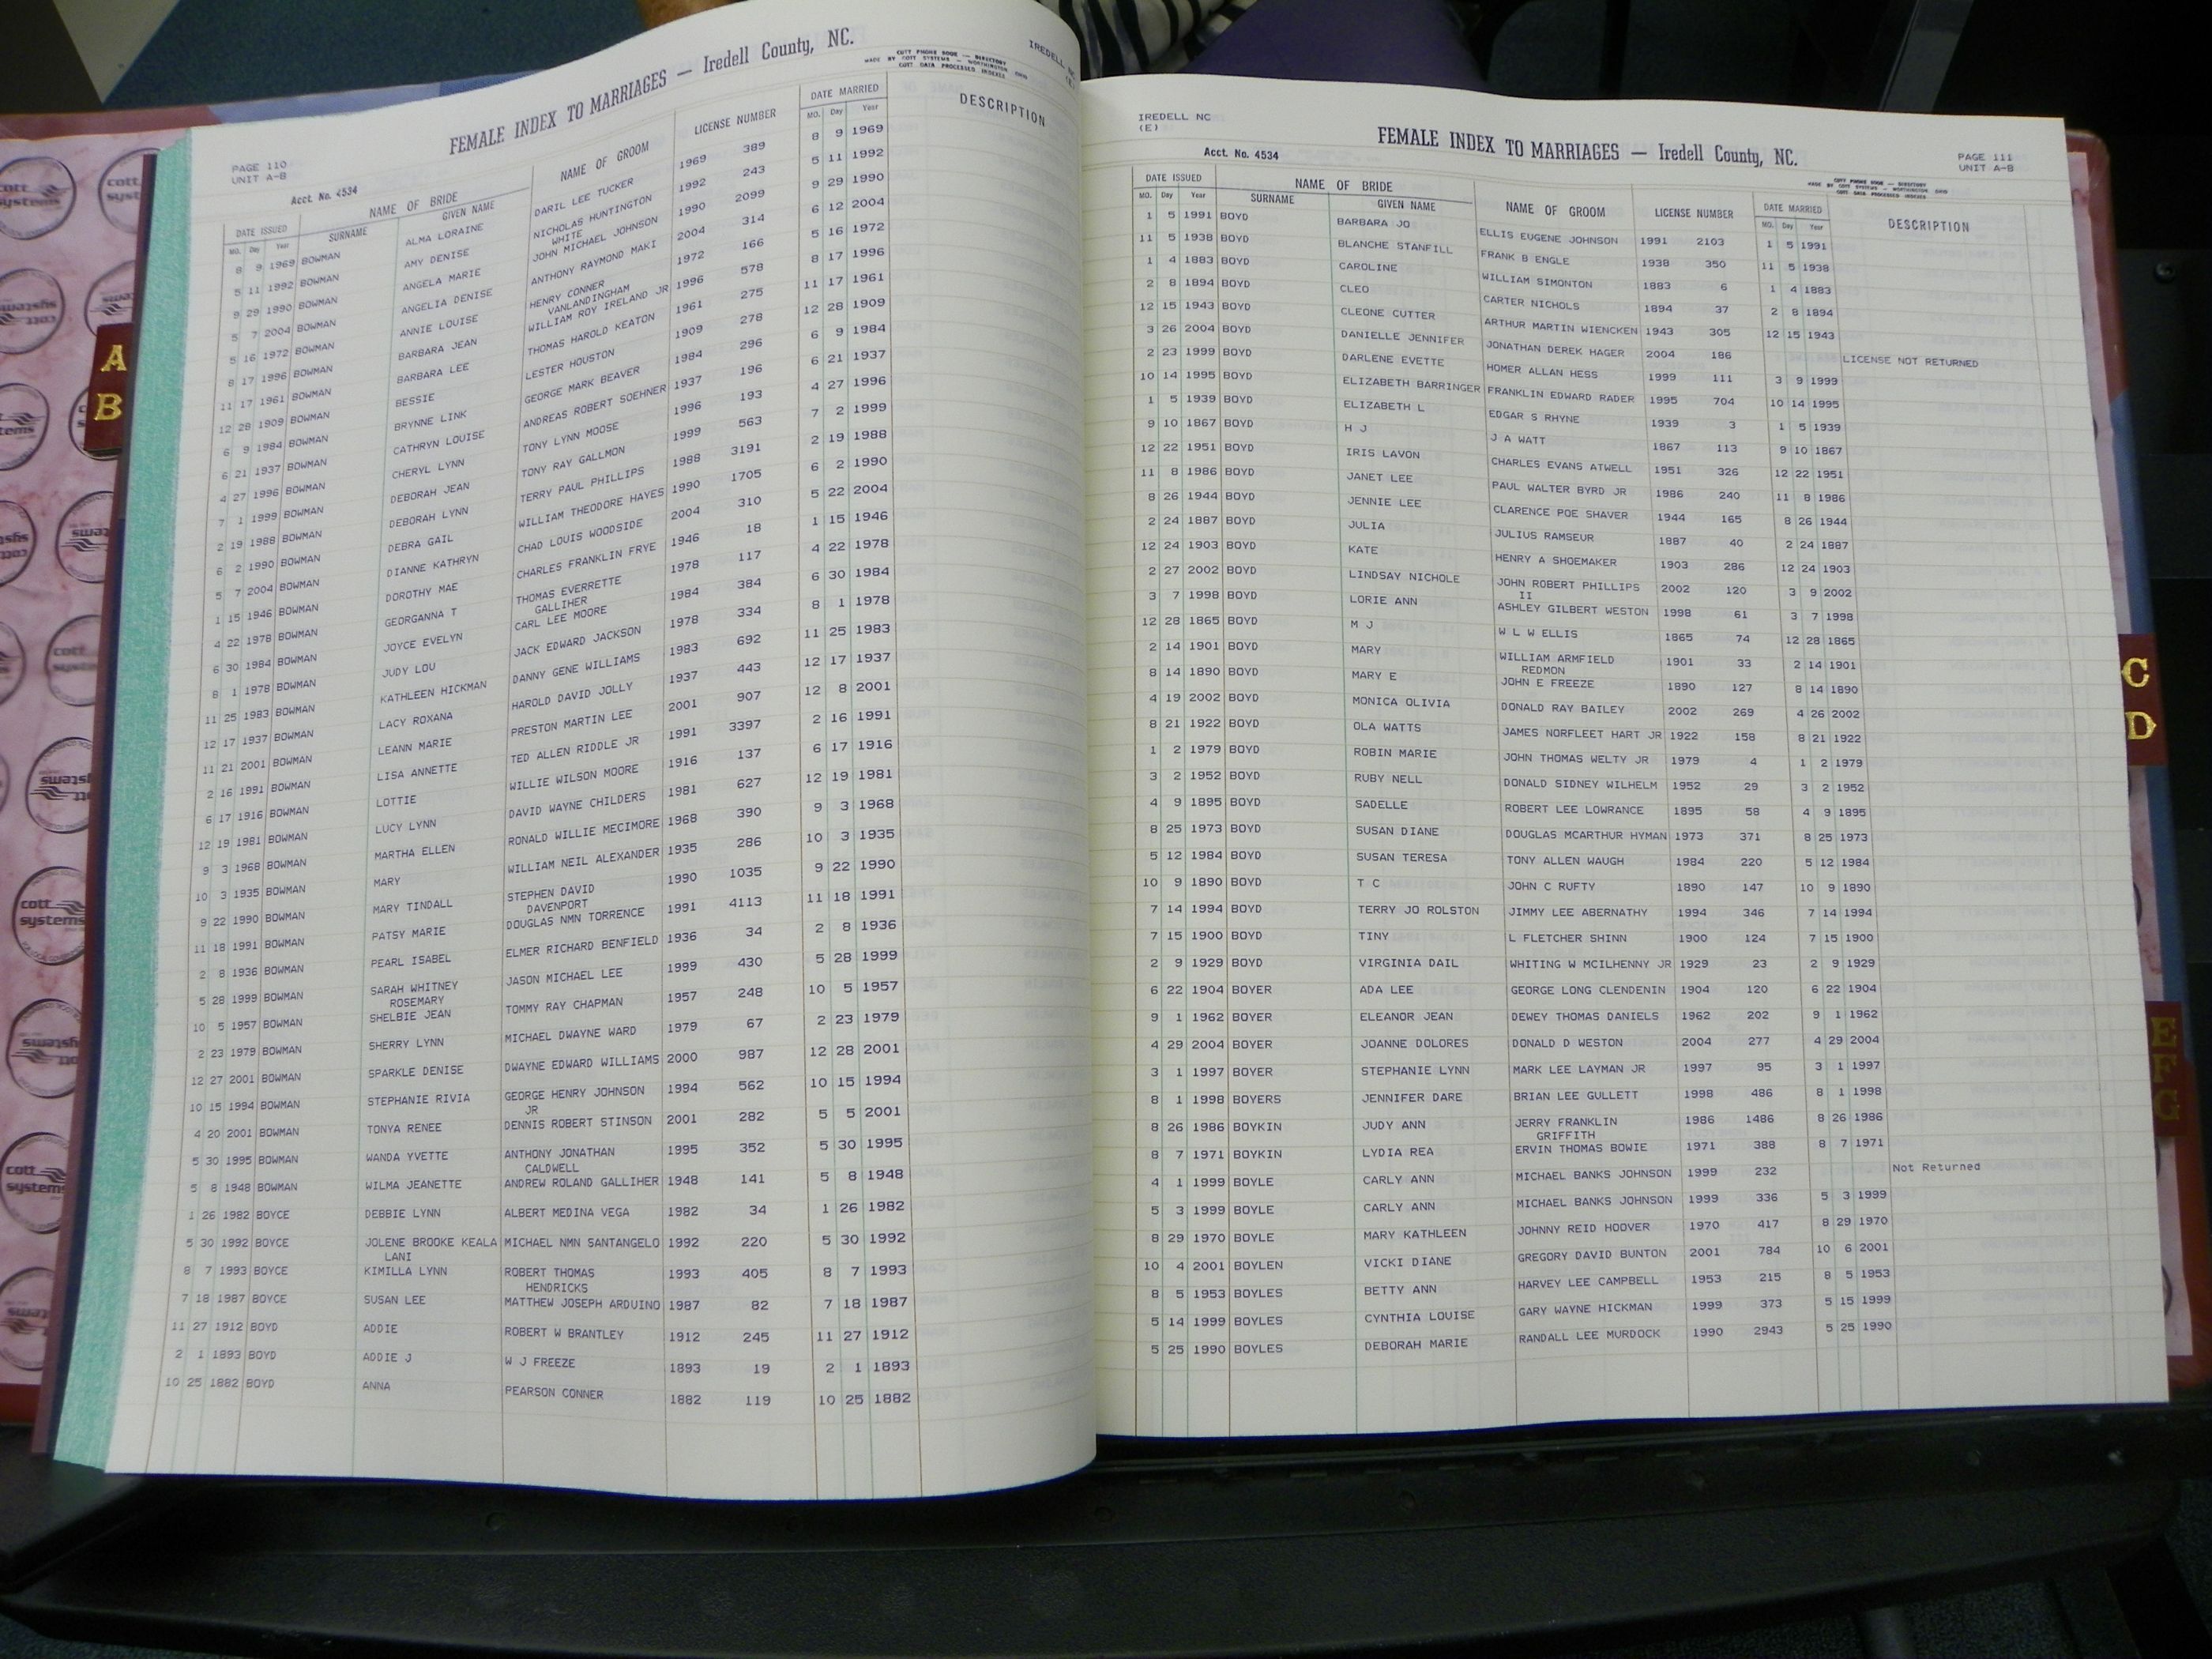 FEMALE INDEX TO MARRIAGES — Iredell County, NC.
MADE BY COTT SYSTEMS — WORTHINGTON OHIO
COTT DATA PROCESSED INDEXES
PAGE 110
UNIT A-B
Acct. No. 4534
DATE ISSUED NAME OF BRIDE NAME OF GROOM LICENSE NUMBER DATE MARRIED DESCRIPTION
MO. Day Year SURNAME GIVEN NAME MO. Day Year
8 9 1969 BOWMAN ALMA LORAINE DARIL LEE TUCKER 1969 389 8 9 1969
5 11 1992 BOWMAN AMY DENISE NICHOLAS HUNTINGTON 1992 243 5 11 1992
WHITE
9 29 1990 BOWMAN ANGELA MARIE JOHN MICHAEL JOHNSON 1990 2099 9 29 1990
5 7 2004 BOWMAN ANGELIA DENISE ANTHONY RAYMOND MAKI 2004 314 6 12 2004
5 16 1972 BOWMAN ANNIE LOUISE HENRY CONNER 1972 166 5 16 1972
VANLANDINGHAM
8 17 1996 BOWMAN BARBARA JEAN WILLIAM ROY IRELAND JR 1996 578 8 17 1996
11 17 1961 BOWMAN BARBARA LEE THOMAS HAROLD KEATON 1961 275 11 17 1961
12 28 1909 BOWMAN BESSIE LESTER HOUSTON 1909 278 12 28 1909
6 9 1984 BOWMAN BRYNNE LINK GEORGE MARK BEAVER 1984 296 6 9 1984
6 21 1937 BOWMAN CATHRYN LOUISE ANDREAS ROBERT SOEHNER 1937 196 6 21 1937
4 27 1996 BOWMAN CHERYL LYNN TONY LYNN MOOSE 1996 193 4 27 1996
7 1 1999 BOWMAN DEBORAH JEAN TONY RAY GALLMON 1999 563 7 2 1999
2 19 1988 BOWMAN DEBORAH LYNN TERRY PAUL PHILLIPS 1988 3191 2 19 1988
6 2 1990 BOWMAN DEBRA GAIL WILLIAM THEODORE HAYES 1990 1705 6 2 1990
5 7 2004 BOWMAN DIANNE KATHRYN CHAD LOUIS WOODSIDE 2004 310 5 22 2004
1 15 1946 BOWMAN DOROTHY MAE CHARLES FRANKLIN FRYE 1946 18 1 15 1946
4 22 1978 BOWMAN GEORGANNA T THOMAS EVERRETTE 1978 117 4 22 1978
GALLIHER
6 30 1984 BOWMAN JOYCE EVELYN CARL LEE MOORE 1984 384 6 30 1984
8 1 1978 BOWMAN JUDY LOU JACK EDWARD JACKSON 1978 334 8 1 1978
11 25 1983 BOWMAN KATHLEEN HICKMAN DANNY GENE WILLIAMS 1983 692 11 25 1983
12 17 1937 BOWMAN LACY ROXANA HAROLD DAVID JOLLY 1937 443 12 17 1937
11 21 2001 BOWMAN LEANN MARIE PRESTON MARTIN LEE 2001 907 12 8 2001
2 16 1991 BOWMAN LISA ANNETTE TED ALLEN RIDDLE JR 1991 3397 2 16 1991
6 17 1916 BOWMAN LOTTIE WILLIE WILSON MOORE 1916 137 6 17 1916
12 19 1981 BOWMAN LUCY LYNN DAVID WAYNE CHILDERS 1981 627 12 19 1981
9 3 1968 BOWMAN MARTHA ELLEN RONALD WILLIE MECIMORE 1968 390 9 3 1968
10 3 1935 BOWMAN MARY WILLIAM NEIL ALEXANDER 1935 286 10 3 1935
9 22 1990 BOWMAN MARY TINDALL STEPHEN DAVID 1990 1035 9 22 1990
DAVENPORT
11 18 1991 BOWMAN PATSY MARIE DOUGLAS NMN TORRENCE 1991 4113 11 18 1991
2 8 1936 BOWMAN PEARL ISABEL ELMER RICHARD BENFIELD 1936 34 2 8 1936
5 28 1999 BOWMAN SARAH WHITNEY JASON MICHAEL LEE 1999 430 5 28 1999
ROSEMARY
10 5 1957 BOWMAN SHELBIE JEAN TOMMY RAY CHAPMAN 1957 248 10 5 1957
2 23 1979 BOWMAN SHERRY LYNN MICHAEL DWAYNE WARD 1979 67 2 23 1979
12 27 2001 BOWMAN SPARKLE DENISE DWAYNE EDWARD WILLIAMS 2000 987 12 28 2001
10 15 1994 BOWMAN STEPHANIE RIVIA GEORGE HENRY JOHNSON 1994 562 10 15 1994
JR
4 20 2001 BOWMAN TONYA RENEE DENNIS ROBERT STINSON 2001 282 5 5 2001
5 30 1995 BOWMAN WANDA YVETTE ANTHONY JONATHAN 1995 352 5 30 1995
CALDWELL
5 8 1948 BOWMAN WILMA JEANETTE ANDREW ROLAND GALLIHER 1948 141 5 8 1948
1 26 1982 BOYCE DEBBIE LYNN ALBERT MEDINA VEGA 1982 34 1 26 1982
5 30 1992 BOYCE JOLENE BROOKE KEALA MICHAEL NMN SANTANGELO 1992 220 5 30 1992
LANI
8 7 1993 BOYCE KIMILLA LYNN ROBERT THOMAS 1993 405 8 7 1993
HENDRICKS
7 18 1987 BOYCE SUSAN LEE MATTHEW JOSEPH ARDUINO 1987 82 7 18 1987
11 27 1912 BOYD ADDIE ROBERT W BRANTLEY 1912 245 11 27 1912
2 1 1893 BOYD ADDIE J W J FREEZE 1893 19 2 1 1893
10 25 1882 BOYD ANNA PEARSON CONNER 1882 119 10 25 1882
IREDELL NC
(E)
FEMALE INDEX TO MARRIAGES — Iredell County, NC.
Acct. No. 4534
PAGE 111
UNIT A-B
DATE ISSUED NAME OF BRIDE NAME OF GROOM LICENSE NUMBER DATE MARRIED DESCRIPTION
MO. Day Year SURNAME GIVEN NAME MO. Day Year
1 5 1991 BOYD BARBARA JO ELLIS EUGENE JOHNSON 1991 2103 1 5 1991
11 5 1938 BOYD BLANCHE STANFILL FRANK B ENGLE 1938 350 11 5 1938
1 4 1883 BOYD CAROLINE WILLIAM SIMONTON 1883 6 1 4 1883
2 8 1894 BOYD CLEO CARTER NICHOLS 1894 37 2 8 1894
12 15 1943 BOYD CLEONE CUTTER ARTHUR MARTIN WIENCKEN 1943 305 12 15 1943
3 26 2004 BOYD DANIELLE JENNIFER JONATHAN DEREK HAGER 2004 186 LICENSE NOT RETURNED
2 23 1999 BOYD DARLENE EVETTE HOMER ALLAN HESS 1999 111 3 9 1999
10 14 1995 BOYD ELIZABETH BARRINGER FRANKLIN EDWARD RADER 1995 704 10 14 1995
1 5 1939 BOYD ELIZABETH L EDGAR S RHYNE 1939 3 1 5 1939
9 10 1867 BOYD H J J A WATT 1867 113 9 10 1867
12 22 1951 BOYD IRIS LAVON CHARLES EVANS ATWELL 1951 326 12 22 1951
11 8 1986 BOYD JANET LEE PAUL WALTER BYRD JR 1986 240 11 8 1986
8 26 1944 BOYD JENNIE LEE CLARENCE POE SHAVER 1944 165 8 26 1944
2 24 1887 BOYD JULIA JULIUS RAMSEUR 1887 40 2 24 1887
12 24 1903 BOYD KATE HENRY A SHOEMAKER 1903 286 12 24 1903
2 27 2002 BOYD LINDSAY NICHOLE JOHN ROBERT PHILLIPS 2002 120 3 9 2002
II
3 7 1998 BOYD LORIE ANN ASHLEY GILBERT WESTON 1998 61 3 7 1998
12 28 1865 BOYD M J W L W ELLIS 1865 74 12 28 1865
2 14 1901 BOYD MARY WILLIAM ARMFIELD 1901 33 2 14 1901
REDMON
8 14 1890 BOYD MARY E JOHN E FREEZE 1890 127 8 14 1890
4 19 2002 BOYD MONICA OLIVIA DONALD RAY BAILEY 2002 269 4 26 2002
8 21 1922 BOYD OLA WATTS JAMES NORFLEET HART JR 1922 158 8 21 1922
1 2 1979 BOYD ROBIN MARIE JOHN THOMAS WELTY JR 1979 4 1 2 1979
3 2 1952 BOYD RUBY NELL DONALD SIDNEY WILHELM 1952 29 3 2 1952
4 9 1895 BOYD SADELLE ROBERT LEE LOWRANCE 1895 58 4 9 1895
8 25 1973 BOYD SUSAN DIANE DOUGLAS MCARTHUR HYMAN 1973 371 8 25 1973
5 12 1984 BOYD SUSAN TERESA TONY ALLEN WAUGH 1984 220 5 12 1984
10 9 1890 BOYD T C JOHN C RUFTY 1890 147 10 9 1890
7 14 1994 BOYD TERRY JO ROLSTON JIMMY LEE ABERNATHY 1994 346 7 14 1994
7 15 1900 BOYD TINY L FLETCHER SHINN 1900 124 7 15 1900
2 9 1929 BOYD VIRGINIA DAIL WHITING W MCILHENNY JR 1929 23 2 9 1929
6 22 1904 BOYER ADA LEE GEORGE LONG CLENDENIN 1904 120 6 22 1904
9 1 1962 BOYER ELEANOR JEAN DEWEY THOMAS DANIELS 1962 202 9 1 1962
4 29 2004 BOYER JOANNE DOLORES DONALD D WESTON 2004 277 4 29 2004
3 1 1997 BOYER STEPHANIE LYNN MARK LEE LAYMAN JR 1997 95 3 1 1997
8 1 1998 BOYERS JENNIFER DARE BRIAN LEE GULLETT 1998 486 8 1 1998
8 26 1986 BOYKIN JUDY ANN JERRY FRANKLIN 1986 1486 8 26 1986
GRIFFITH
8 7 1971 BOYKIN LYDIA REA ERVIN THOMAS BOWIE 1971 388 8 7 1971
4 1 1999 BOYLE CARLY ANN MICHAEL BANKS JOHNSON 1999 232 Not Returned
5 3 1999 BOYLE CARLY ANN MICHAEL BANKS JOHNSON 1999 336 5 3 1999
8 29 1970 BOYLE MARY KATHLEEN JOHNNY REID HOOVER 1970 417 8 29 1970
10 4 2001 BOYLEN VICKI DIANE GREGORY DAVID BUNTON 2001 784 10 6 2001
8 5 1953 BOYLES BETTY ANN HARVEY LEE CAMPBELL 1953 215 8 5 1953
5 14 1999 BOYLES CYNTHIA LOUISE GARY WAYNE HICKMAN 1999 373 5 15 1999
5 25 1990 BOYLES DEBORAH MARIE RANDALL LEE MURDOCK 1990 2943 5 25 1990
A
B
C
D
E
F
G
cott
systems